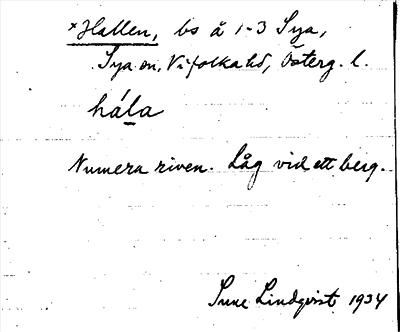 *Hallen, bs å 1-3 Sya,
Sya sn, Vifolka hd, Österg. l.
hála
Numera riven. Låg vid ett berg.
Sune Lindqvist 1934